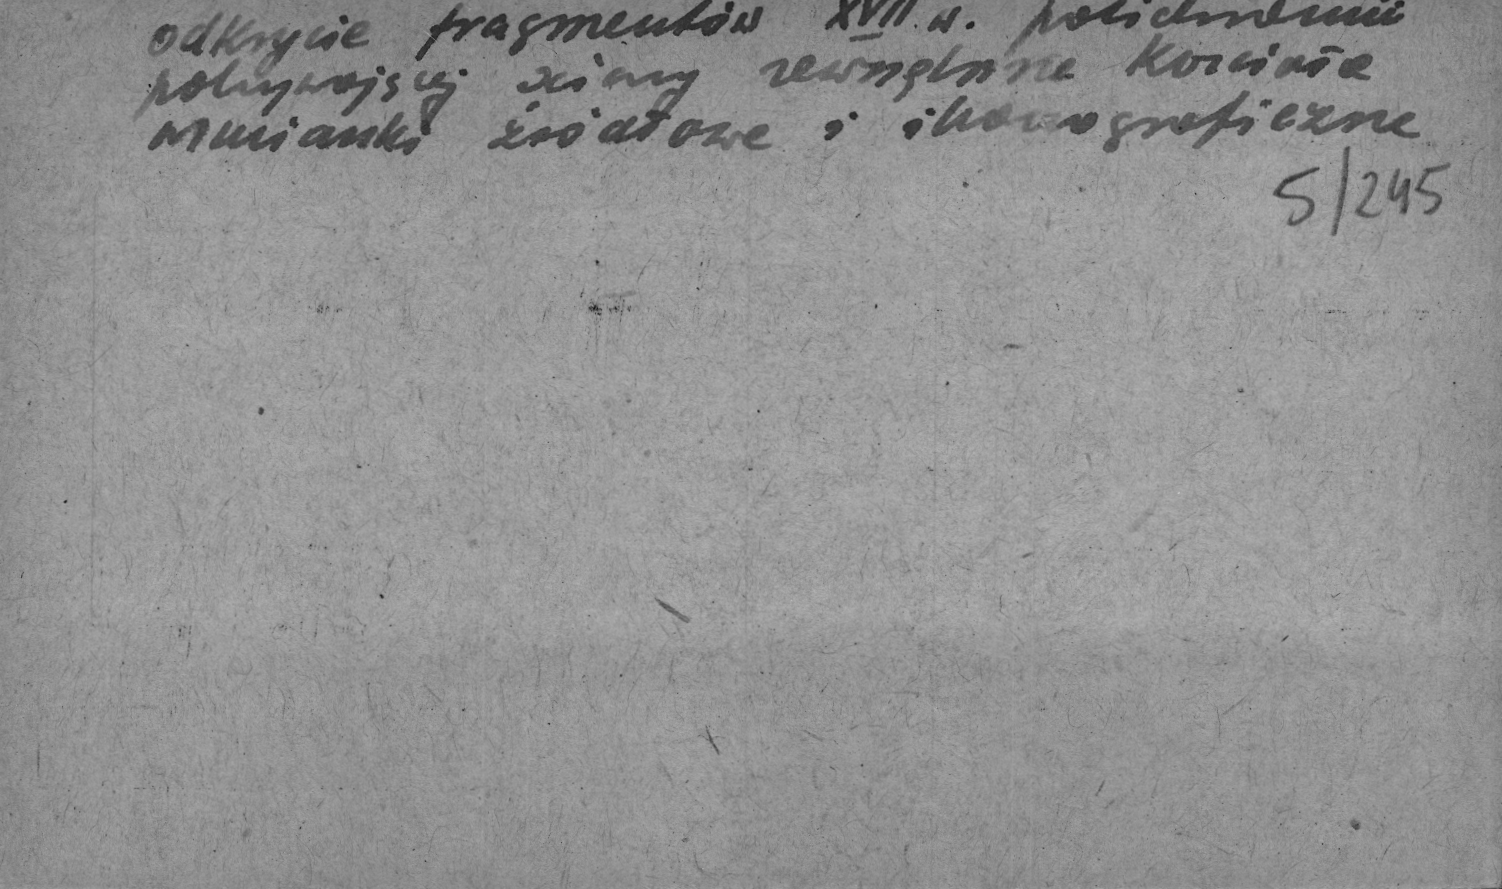 odkrycie fragmentów XVII w. polichromii
pokrywającej ściany zewnętrzne Kościoła
wzmianki źródłowe i ikonograficzne
5/245